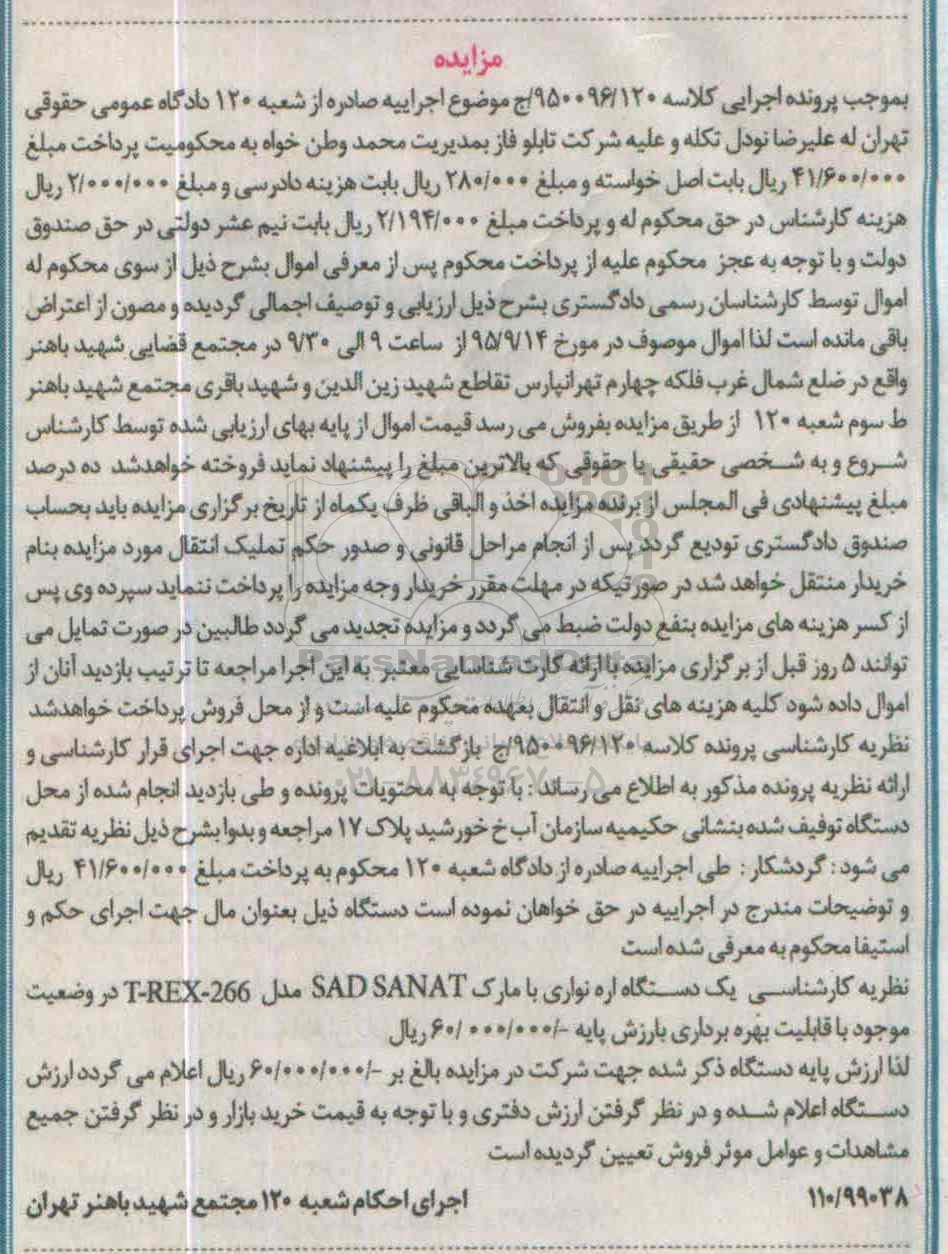 مزایده
بموجب پرونده اجرایی کلاسه ۹۵۰۰۹۶/۱۲۰/ج موضوع اجراییه صادره از شعبه ۱۲۰ دادگاه عمومی حقوقی
تهران له علیرضا نودل تکله و علیه شرکت تابلو فاز بمدیریت محمد وطن خواه به محکومیت پرداخت مبلغ
۴۱/۶۰۰/۰۰۰ ریال بابت اصل خواسته و مبلغ ۲۸۰/۰۰۰ ریال بابت هزینه دادرسی و مبلغ ۲/۰۰۰/۰۰۰ ریال
هزینه کارشناس در حق محکوم له و پرداخت مبلغ ۲/۱۹۴/۰۰۰ ریال بابت نیم عشر دولتی در حق صندوق
دولت و با توجه به عجز محکوم علیه از پرداخت محکوم پس از معرفی اموال بشرح ذیل از سوی محکوم له
اموال توسط کارشناسان رسمی دادگستری بشرح ذیل ارزیابی و توصیف اجمالی گردیده و مصون از اعتراض
باقی مانده است لذا اموال موصوف در مورخ ۹۵/۹/۱۴ از ساعت ۹ الی ۹/۳۰ در مجتمع قضایی شهید باهنر
واقع در ضلع شمال غرب فلکه چهارم تهرانپارس تقاطع شهید زین الدین و شهید باقری مجتمع شهید باهنر
ط سوم شعبه ۱۲۰ از طریق مزایده بفروش می رسد قیمت اموال از پایه بهای ارزیابی شده توسط کارشناس
شروع و به شخصی حقیقی یا حقوقی که بالاترین مبلغ را پیشنهاد نماید فروخته خواهدشد ده درصد
مبلغ پیشنهادی فی المجلس از برنده مزایده اخذ و الباقی ظرف یکماه از تاریخ برگزاری مزایده باید بحساب
صندوق دادگستری تودیع گردد پس از انجام مراحل قانونی و صدور حکم تملیک انتقال مورد مزایده بنام
خریدار منتقل خواهد شد در صورتیکه در مهلت مقرر خریدار وجه مزایده را پرداخت ننماید سپرده وی پس
از کسر هزینه های مزایده بنفع دولت ضبط می گردد و مزایده تجدید می گردد طالبین در صورت تمایل می
توانند ۵ روز قبل از برگزاری مزایده با ارائه کارت شناسایی معتبر به این اجرا مراجعه تا ترتیب بازدید آنان از
اموال داده شود کلیه هزینه های نقل و انتقال بعهده محکوم علیه است و از محل فروش پرداخت خواهدشد
نظریه کارشناسی پرونده کلاسه ۹۵۰۰۹۶/۱۲۰/ج بازگشت به ابلاغیه اداره جهت اجرای قرار کارشناسی و
ارائه نظریه پرونده مذکور به اطلاع می رساند : با توجه به محتویات پرونده و طی بازدید انجام شده از محل
دستگاه توفیف شده بنشانی حکیمیه سازمان آب خ خورشید پلاک ۱۷ مراجعه و بدوا بشرح ذیل نظریه تقدیم
می شود : گردشکار : طی اجراییه صادره از دادگاه شعبه ۱۲۰ محکوم به پرداخت مبلغ ۴۱/۶۰۰/۰۰۰ ریال
و توضیحات مندرج در اجراییه در حق خواهان نموده است دستگاه ذیل بعنوان مال جهت اجرای حکم و
استیفا محکوم به معرفی شده است
نظریه کارشناسی یک دستگاه اره نواری با مارک SAD SANAT مدل T-REX-266 در وضعیت
موجود با قابلیت بهره برداری بارزش پایه -/۶۰/۰۰۰/۰۰۰ ریال
لذا ارزش پایه دستگاه ذکر شده جهت شرکت در مزایده بالغ بر -/۶۰/۰۰۰/۰۰۰ ریال اعلام می گردد ارزش
دستگاه اعلام شده و در نظر گرفتن ارزش دفتری و با توجه به قیمت خرید بازار و در نظر گرفتن جمیع
مشاهدات و عوامل موثر فروش تعیین گردیده است
۱۱۰/۹۹۰۳۸ اجرای احکام شعبه ۱۲۰ مجتمع شهید باهنر تهران
ParsNamadData
۰۲۱-۸۸۳۴۹۶۷۰-۵